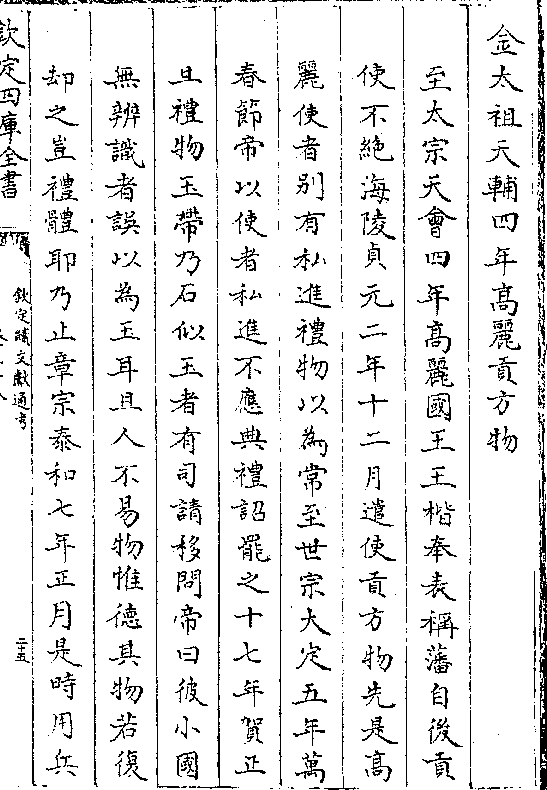 金太祖天輔四年高麗貢方物
至太宗天會四年高麗國王王楷奉表稱藩自後貢
使不絶海陵貞元二年十二月遣使貢方物先是高
麗使者别有私進禮物以為常至世宗大定五年萬
春節帝以使者私進不應典禮詔罷之十七年賀正
旦禮物玉帶乃石似玉者有司請移問帝曰彼小國
無辨識者誤以為玉耳且人不易物惟德其物若復
却之豈禮體耶乃止章宗泰和七年正月是時用兵
欽定四庫全書
欽定續文獻通考
二十五